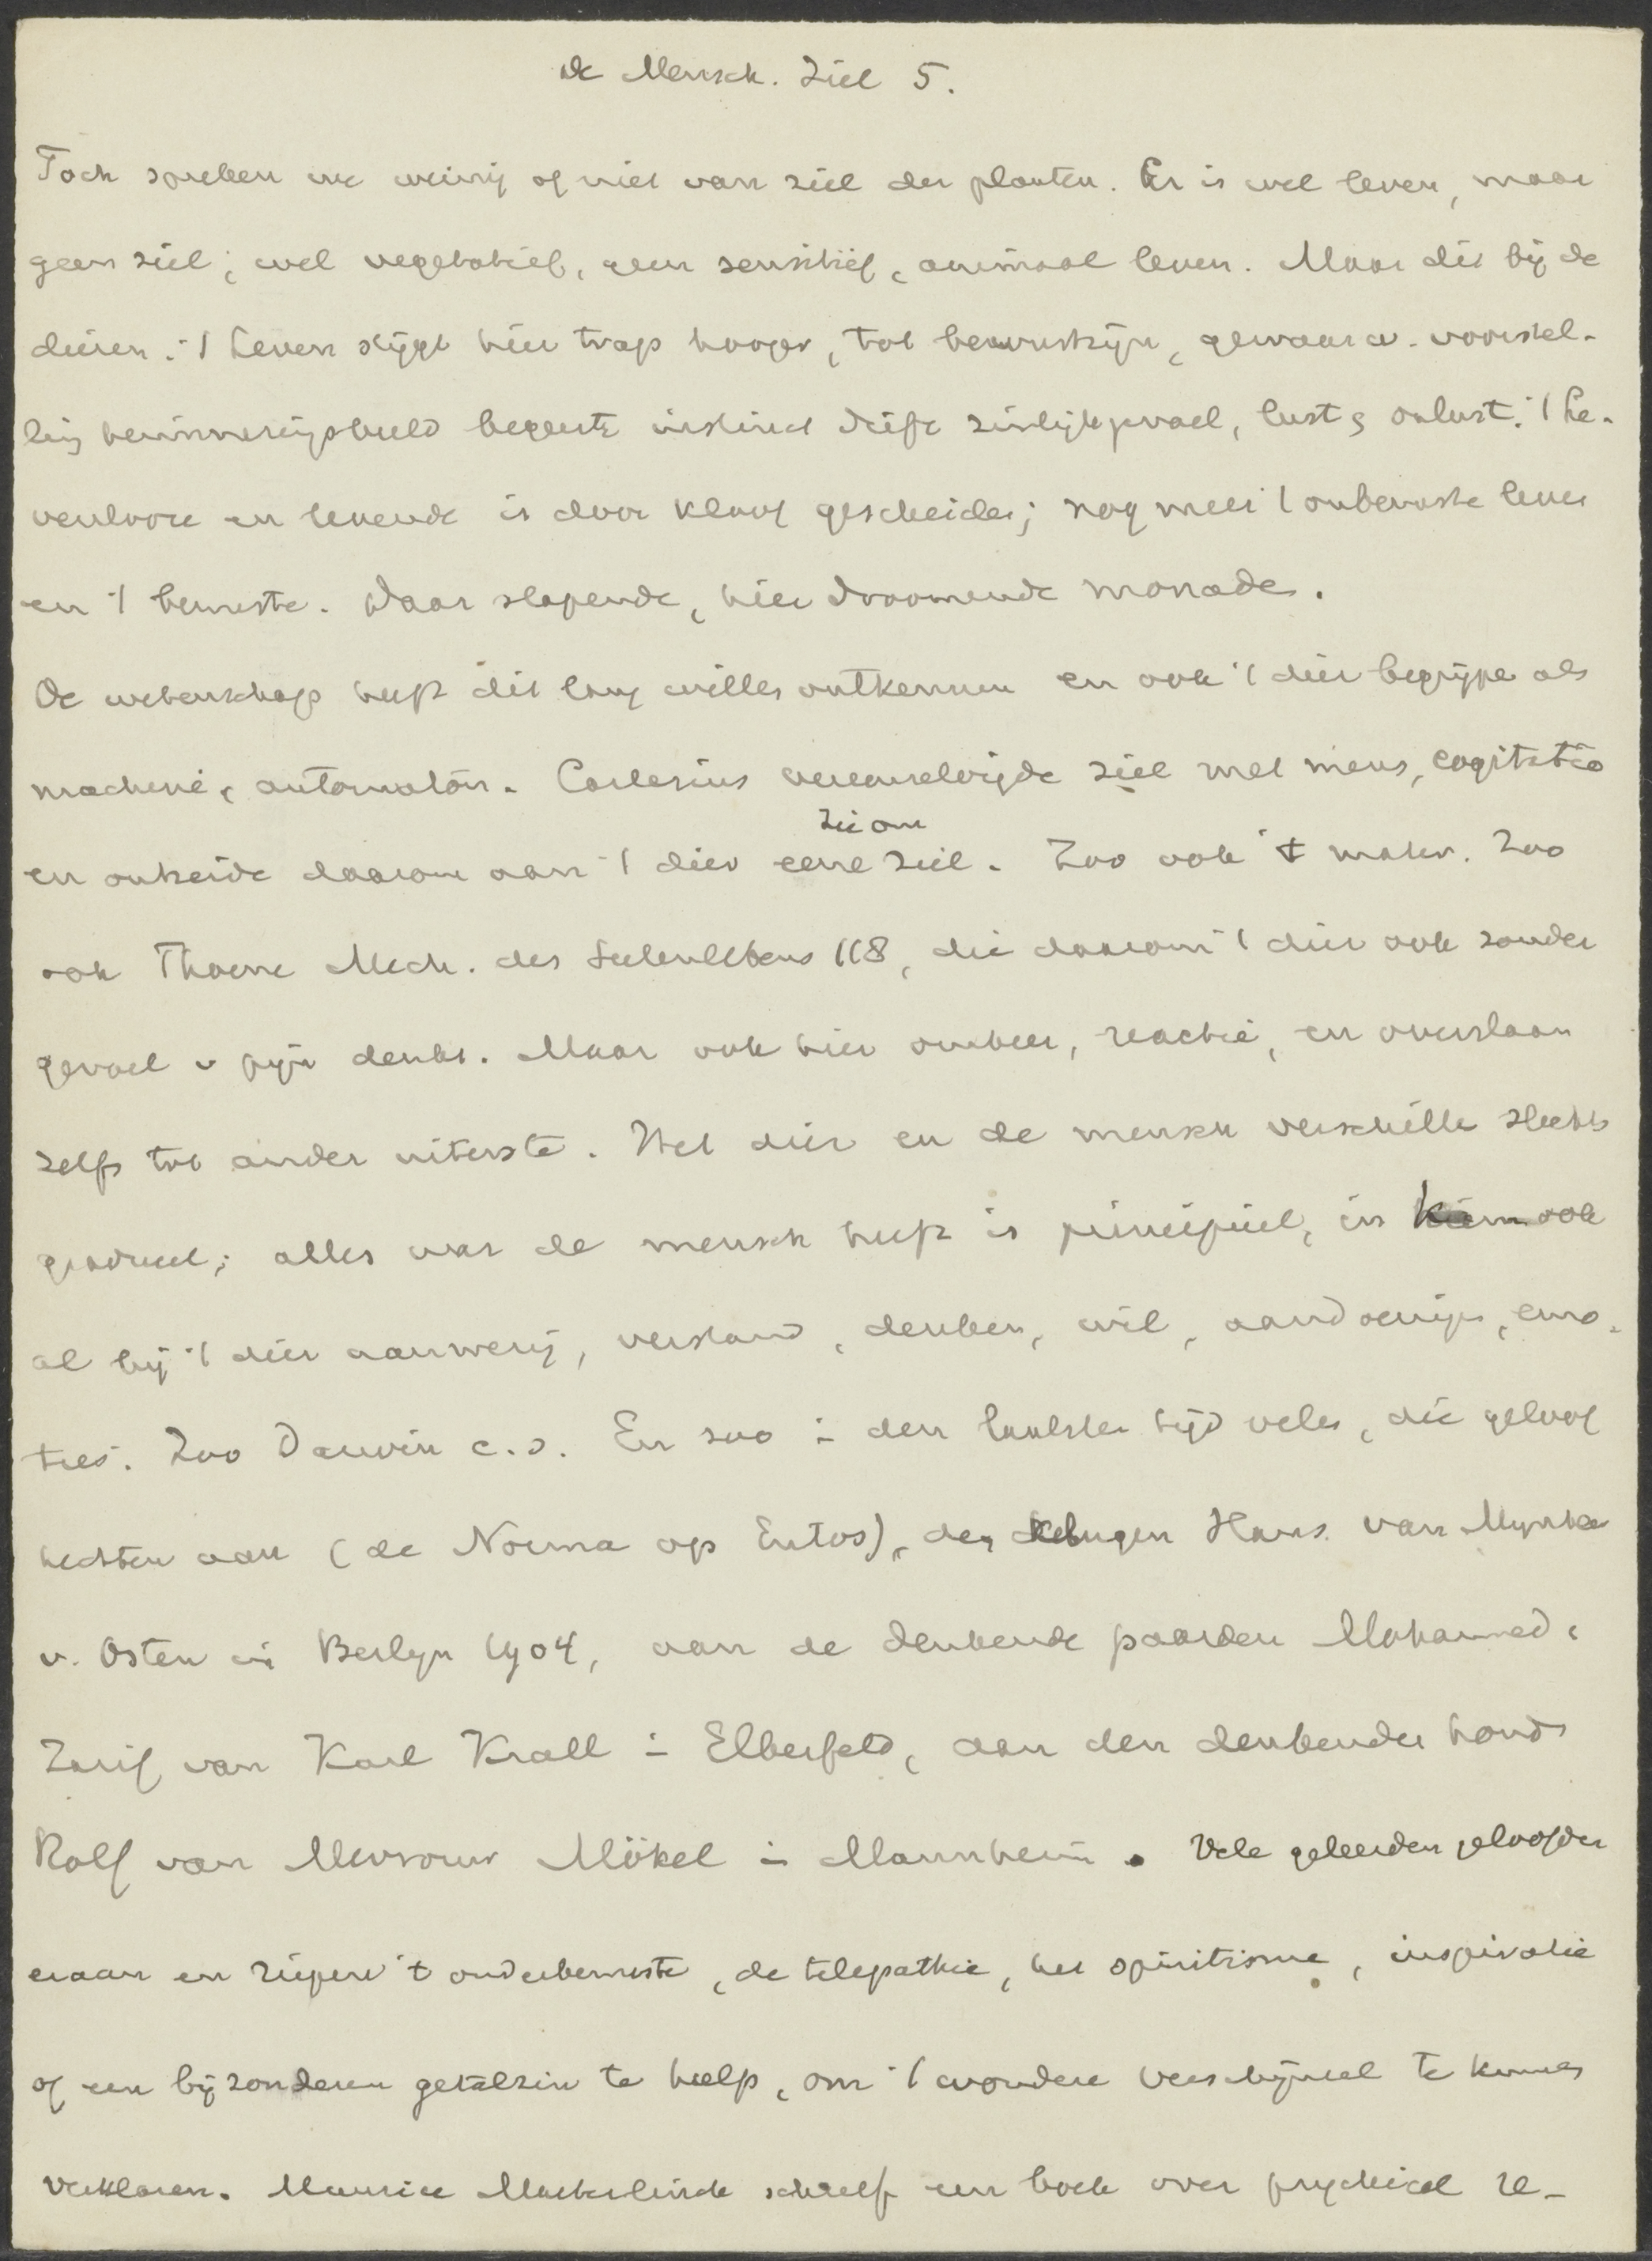 de Mensch. Ziel 5.
Toch spreken we weinig of niet van ziel der planten. Er is wel leven, maar
geen ziel; wel vegetatief, geen sensitief, animaal leven. Maar dit bij de
dieren. 't Leven stijgt hier trap hooger, tot bewustzijn, gewaarw. voorstel-
ling herinneringsbeeld begeerte instinct drift zinlijk gevoel, lust & onlust. 't Le-
venlooze en levende is door kloof gescheiden; nog meer 't onbewuste leven
en 't bewuste. Daar slapende, hier droomende monaden.
De wetenschap heeft dit lang willen ontkennen en ook 't dier begrijpen als
machine, automaton. Cartesius vereenzelvigde ziel met mens, cogitatio
Zie om
en ontzeide daarom aan 't dier eene ziel. Zoo ook 't mater. Zoo
ook Thoene Mech. des Seelenlebens 118, die daarom 't dier ook zonder
gevoel v pijn denkt. Maar ook hier omkeer, reactie, en overslaan
zelfs tot ander uiterste. Het dier en de mensch verschillen slechts
gradueel; alles wat de mensch heeft is principieel, in kiem ook
al bij 't dier aanwezig, verstand, denken, wil, aandoeningen, emo-
ties. Zoo Darwin e.a. En zoo in den laatsten tijd velen, die geloof
hechten aan (de Norma op Entos), den kluger Hans van Mynheer
v. Osten in Berlijn 1904, aan de denkende paarden Mohammed &
Zarif van Karl Krall in Elberfeld, aan den denkenden hond
Rolf van Mevrouw Mökel in Mannheim. Vele geleerden geloofden
eraan en riepen 't onderbewuste, de telepathie, het spiritisme, inspiratie
of een bijzonderen getalzin te hulp, om 't wondere verschijnsel te kunnen
verklaren. Maurice Maeterlinck schreef een boek over psychical re-